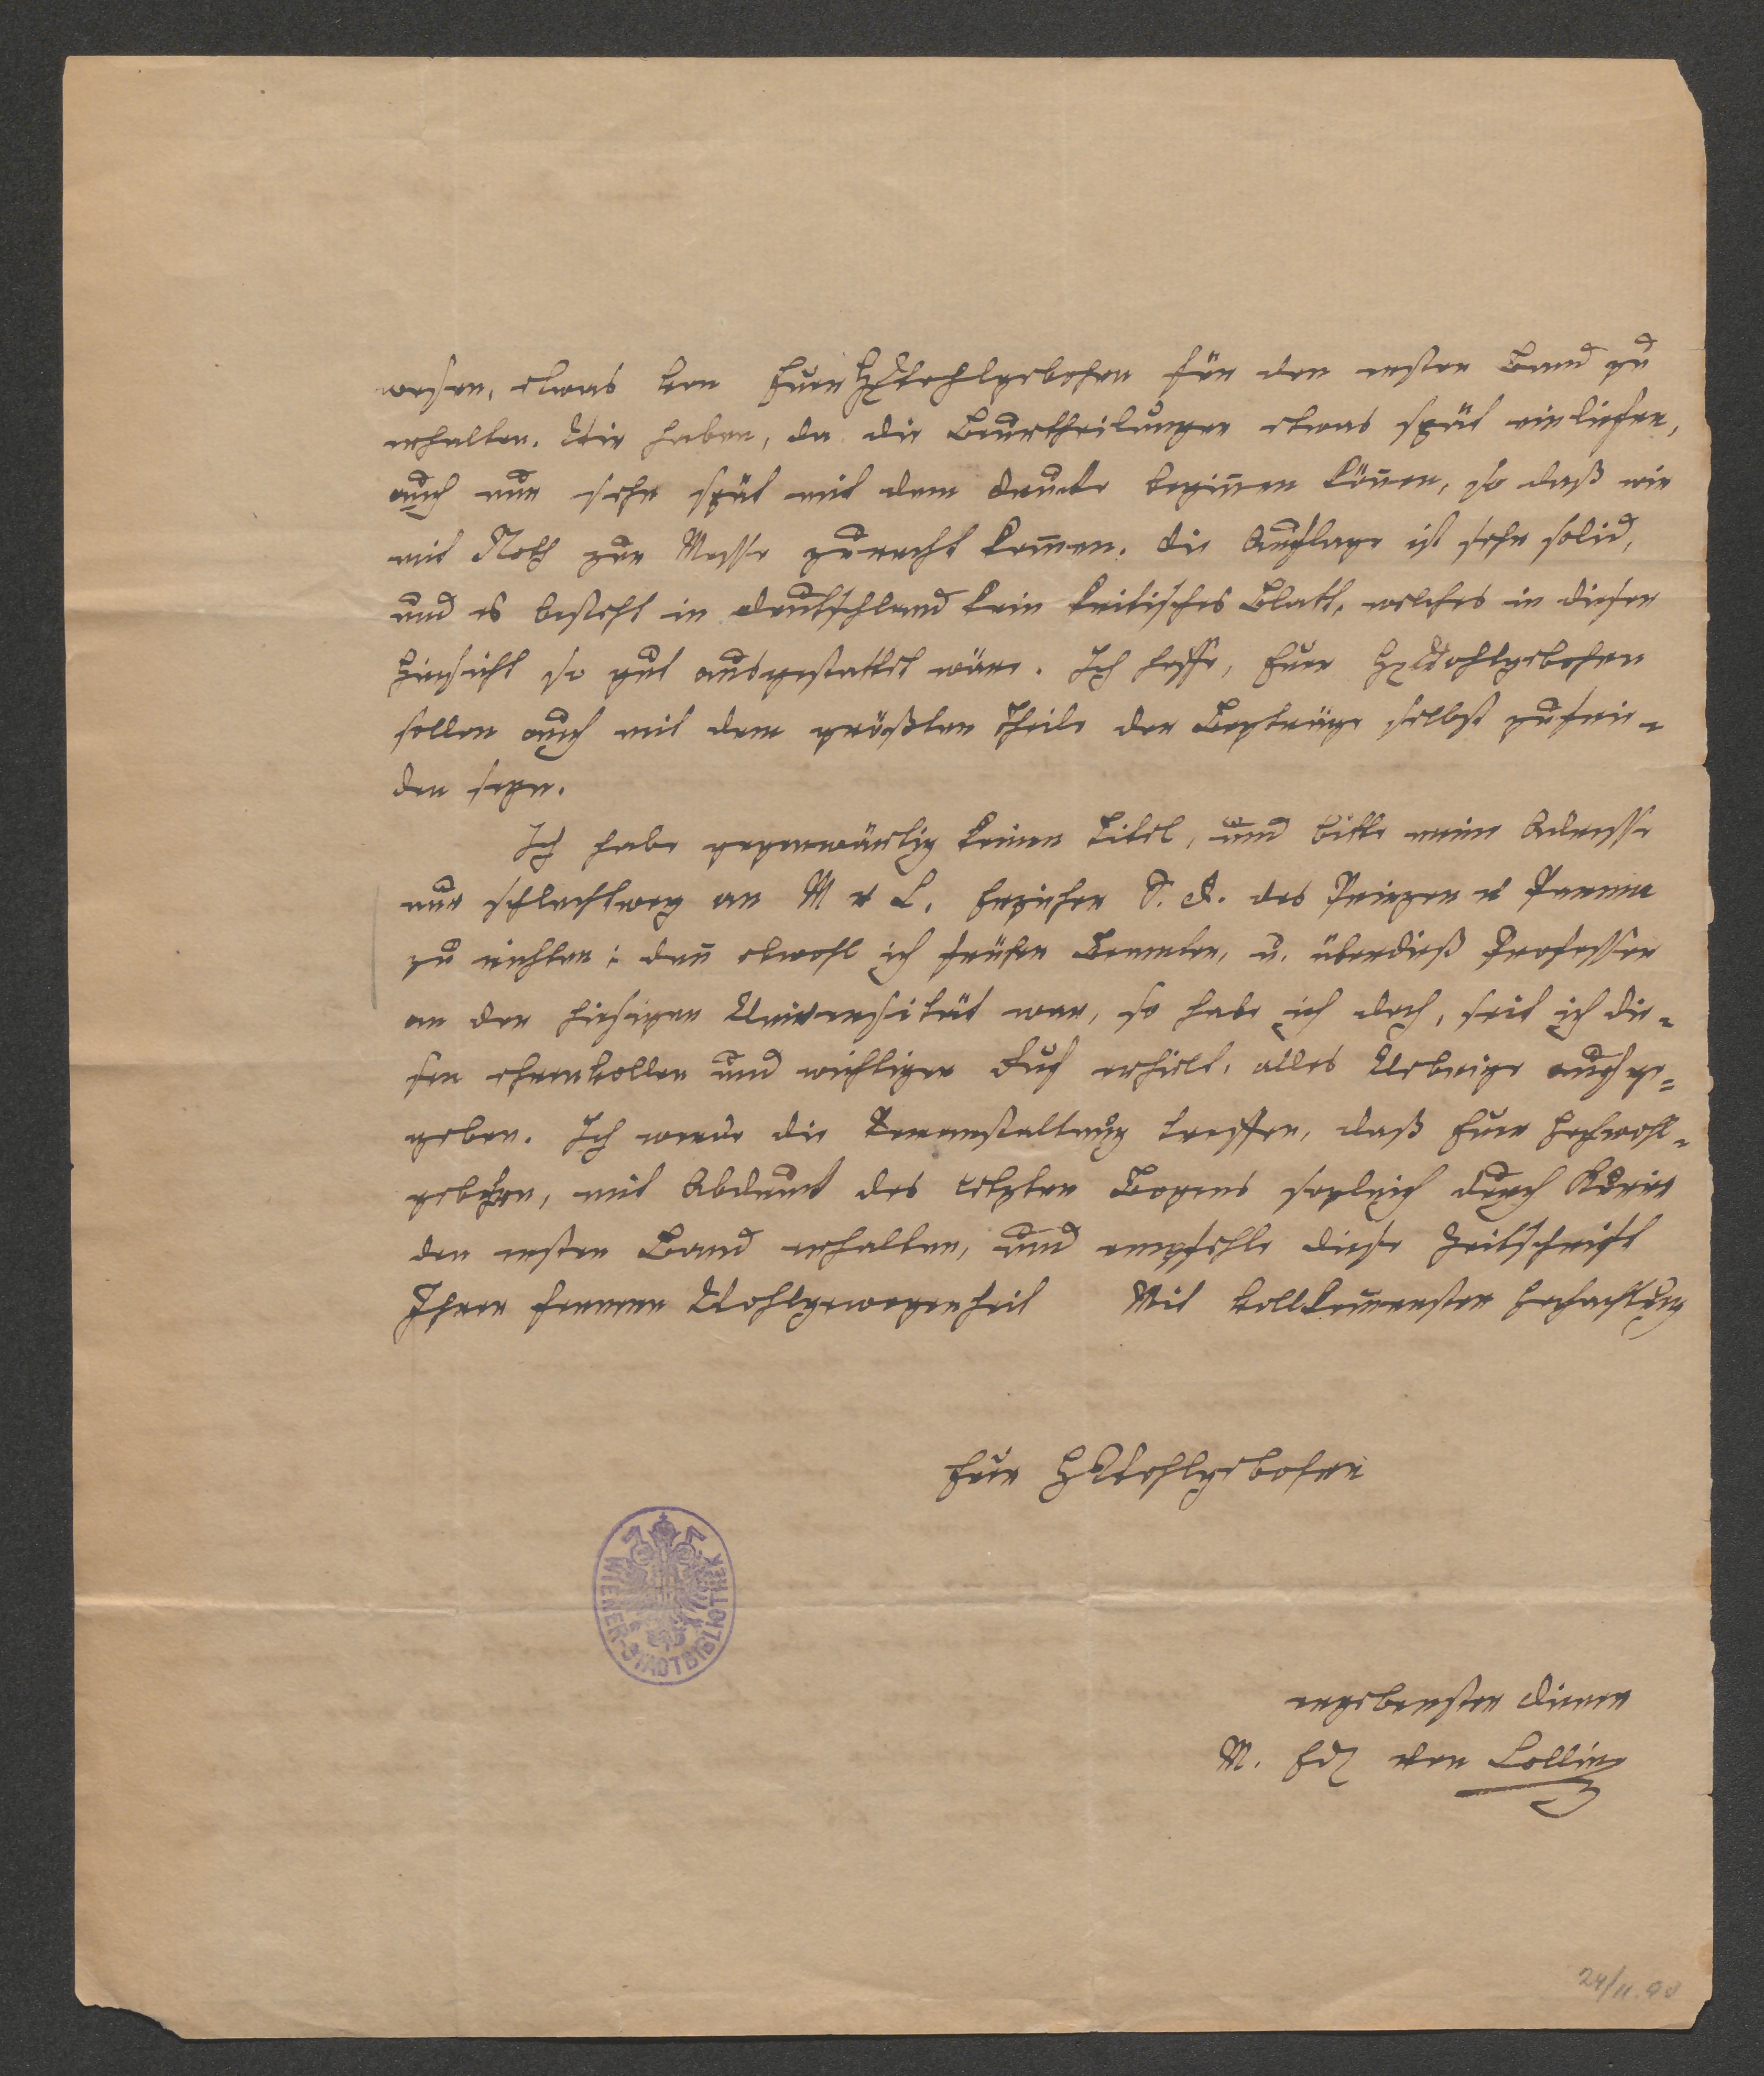 wesen, etwas von Euer HWohlgebohren für den ersten Band zu
erhalten. Wir haben, da die Beurtheilungen etwas spät einliefen,
auch nur sehr spät mit dem Drucke begiñen köñen, so daß wir
mit Noth zur Messe zurecht kom̅en. Die Auflage ist sehr solid,
und es besteht in Deutschland kein kritisches Blatt, welches in dieser
Hinsicht so gut ausgestattet wäre. Ich hoffe, Euer HWohlgebohren
sollen auch mit dem größten Theile der Beyträge selbst zufrie-
den seyn.
Ich habe gegenwärtig keinen Titel, und bitte meine Adresse
nur schlechtweg an M v C. Erzieher S. D. des Prinzen v Parma
zu richten; deñ obwohl ich früher Beamter, u. überdieß Professor
an der hiesigen Universität war, so habe ich doch, seit ich die-
sen ehrenvollen und wichtigen Ruf erhielt, alles Uebrige aufge=
geben. Ich werde die Veranstaltung treffen, daß Euer Hochwohl-
gebohren, mit Abdruck des letzten Bogens sogleich durch
den ersten Band erhalten, und empfehle diese Zeitschrift
Ihrer fernern Wohlgewogenheit Mit vollkom̅enster Hochachtung
Euer HWohlgebohren
ergebenster Diener
M. Edl von Collin
WIENER-STADTBIBLIOTHEK
24/11.90